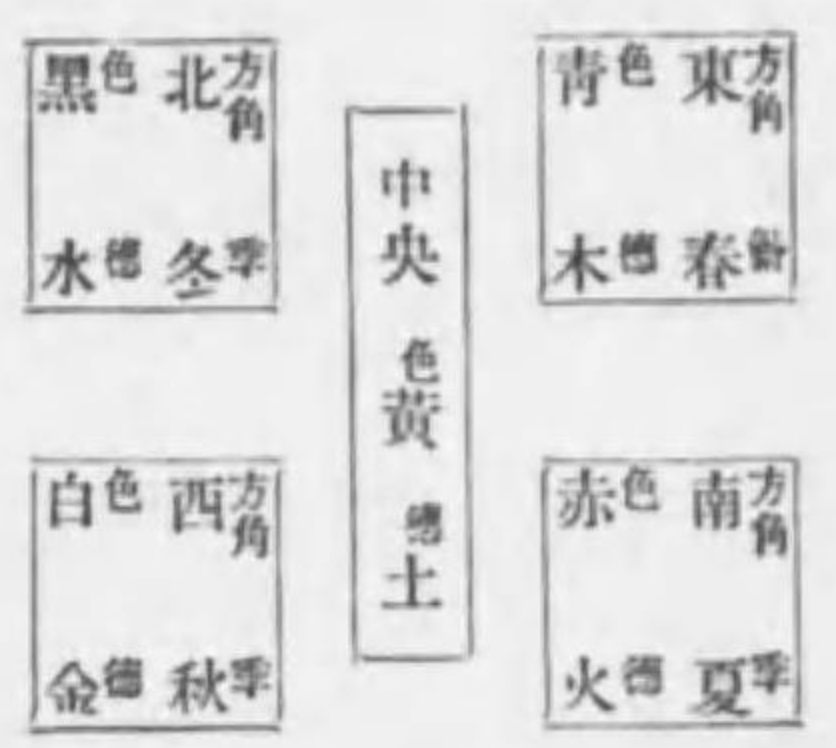 方角 東
色 青
春
德 木
方角 南
色 赤
季 夏
德 火
中央 色 黃 土
方角 北
色 黑
季 冬
德 水
方角 西
色 白
季 秋
德 金